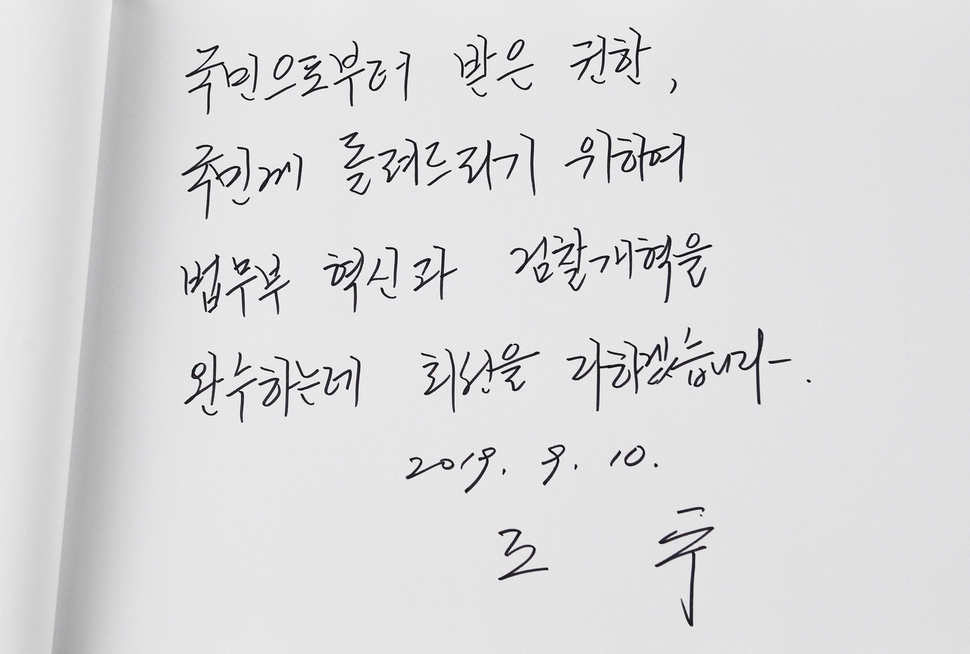 국민으로부터 받은 권한,
국민께 돌려드리기 위하여
법무부 혁신과 검찰개혁을
완수하는데 최선을 다하겠습니다.
2019. 9. 10.
조 국